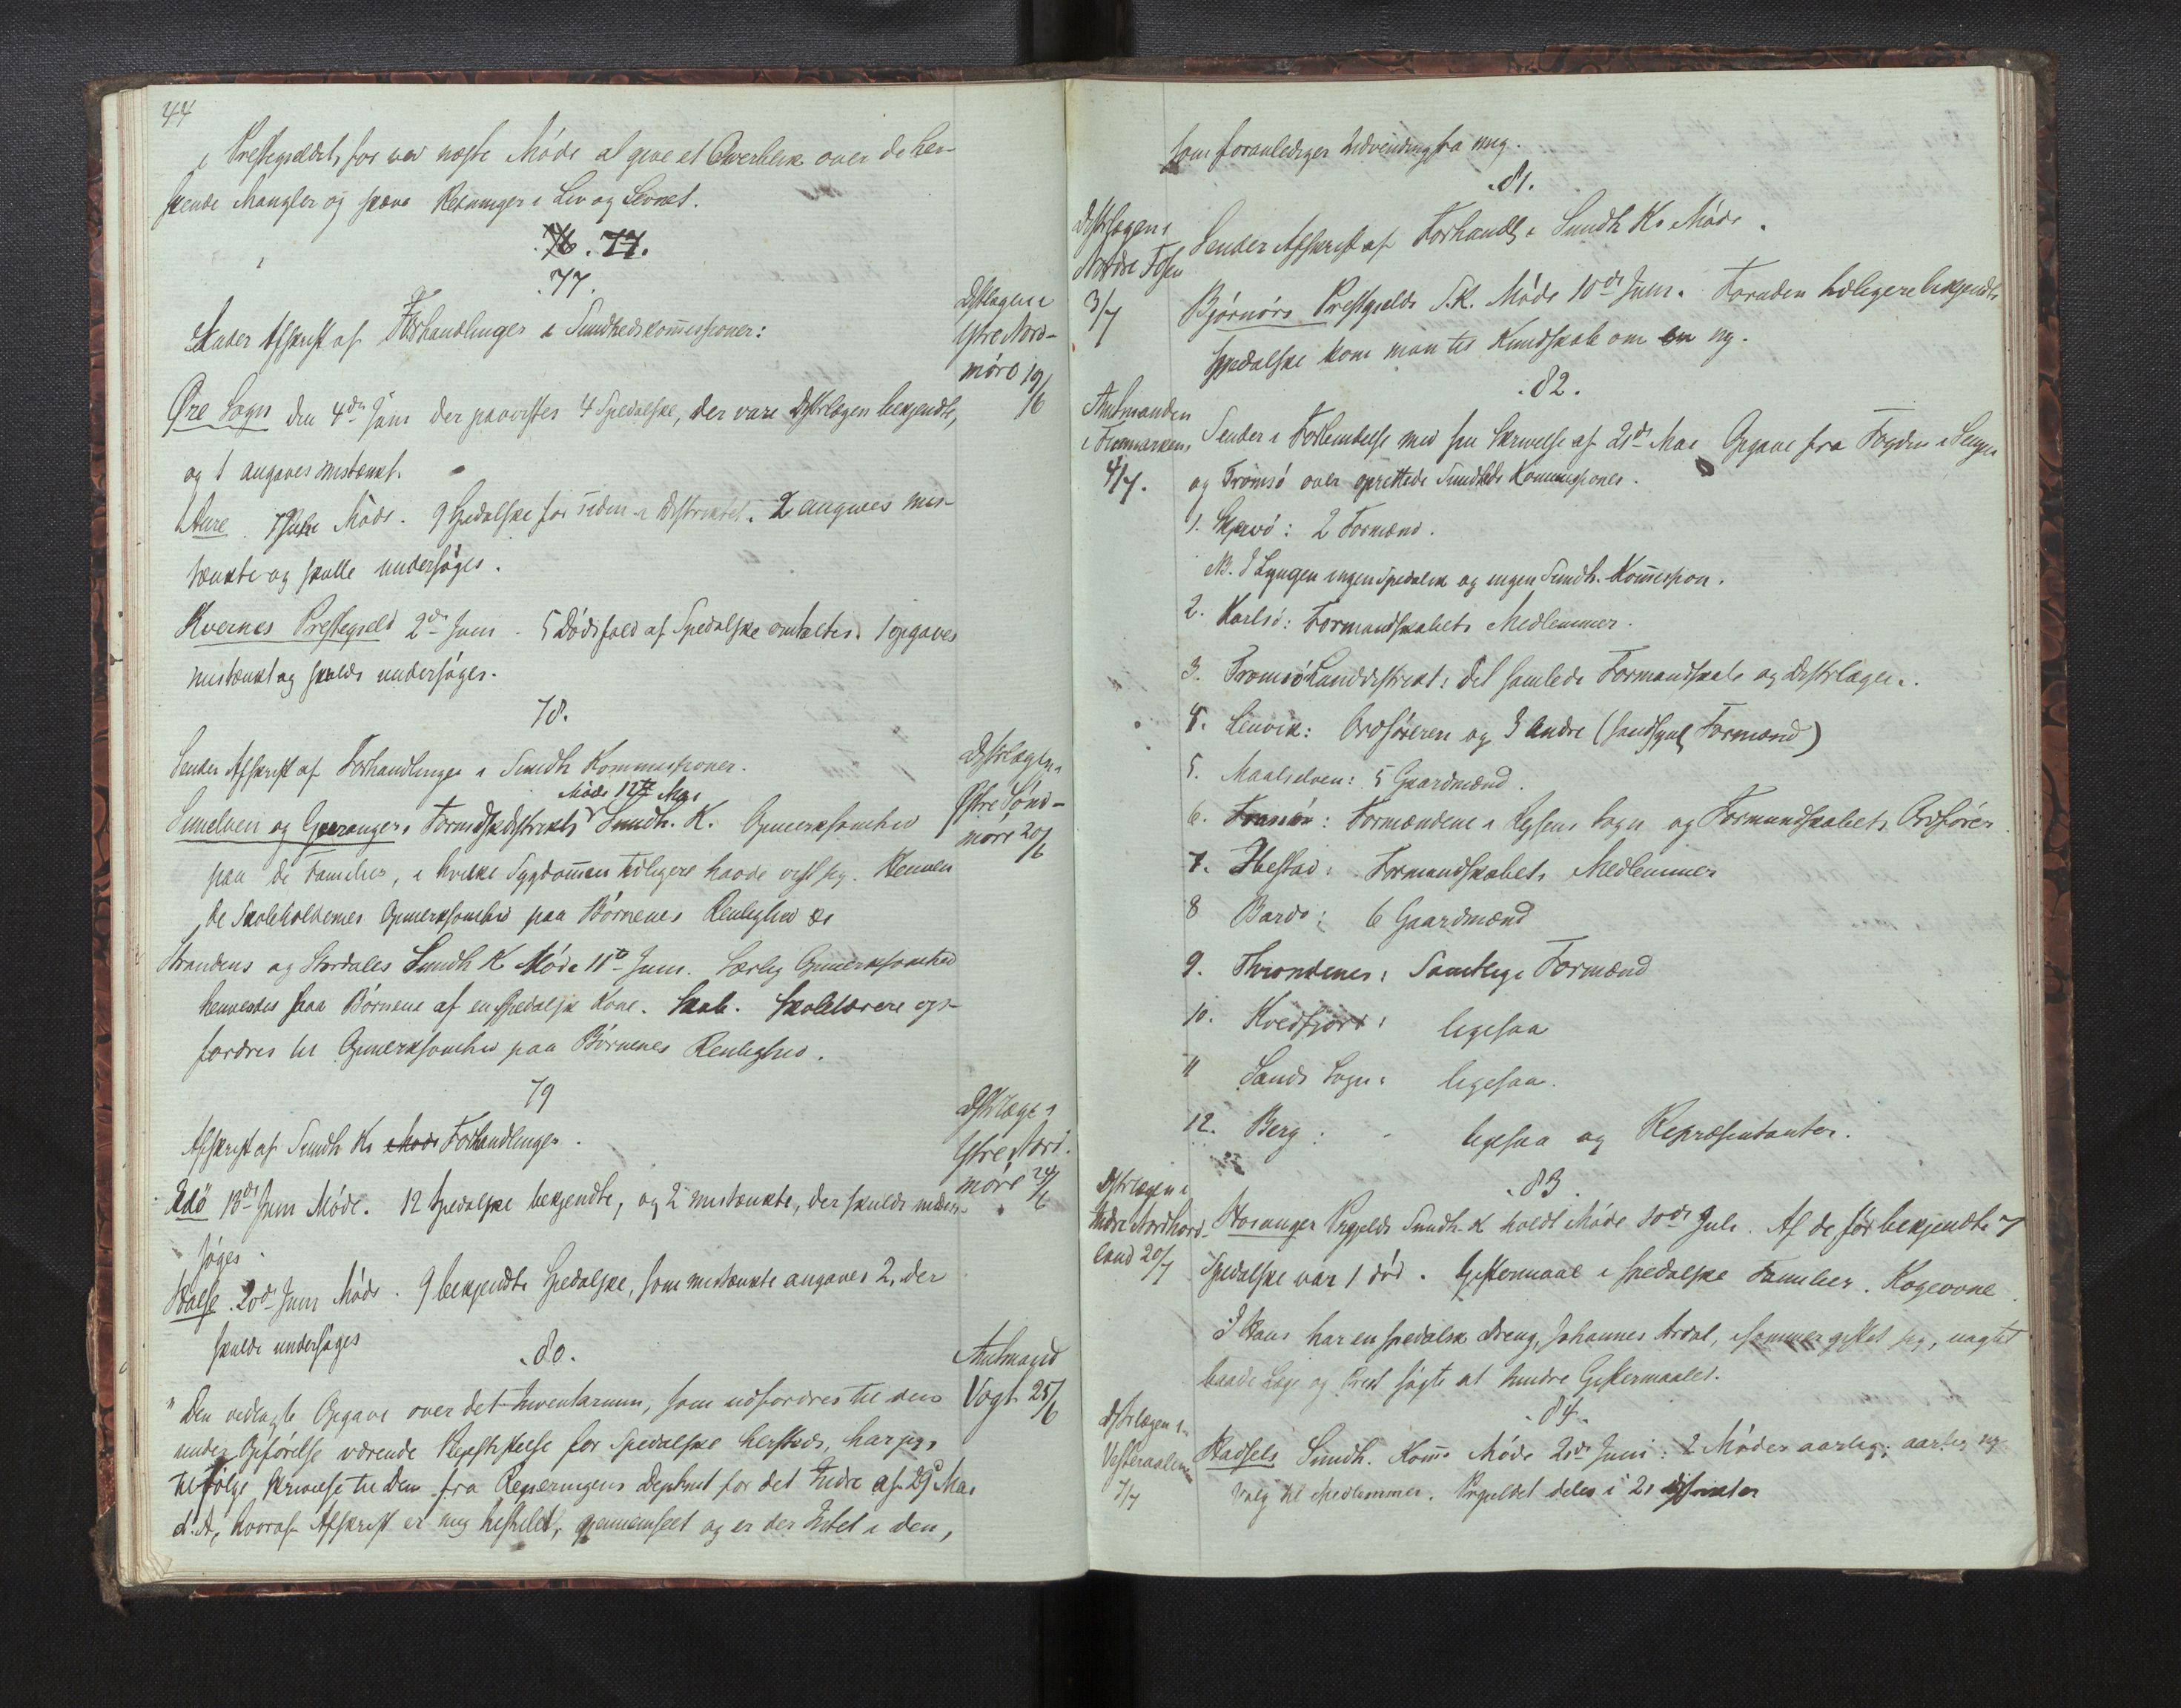 44
i Præstegjældet, for ved næste Møde at give et Overblik over de her-
skende Mangler og skæve Retninger i Liv og Levnet.
76. 77.
77.
Distrlægen i
Ytre Nord-
møre 19/6
Sender Afskrift af Forhandlinger i Sundhedskommissioner:
Øre Sogn den 4de Juni der paavistes 4 Spedalske, der vare Distrlægen bekjendte,
og 1 angaves mistænkt.
Aure. Møde. 9 Spedalske før siden i Distriktet. 2 angaves mis-
tænkte og skulle undersøges.
Kvernes Præstegjeld 2de Juni. 5 Dødsfald af Spedalske omtaltes. 1 opgaves
mistænkt og skulde undersøges.
78.
Distrlægen i
Østre Sønd-
møre 20/6
Sender Afskrift af Forhandlinger i Sundh Kommissioner.
Møde 12te Mai
Sunelven og Geirangers Formdskdistrikts Sundh. K. Opmerksomhed
paa de Familier, i hvilke Sygdommen tidligere havde vist sig. Henven
de Skoleholdernes Opmerksomhed paa Børnenes Renlighed &c
Strandens og Stordales Sundh K Møde 11te Juni. Særlig Opmerksomhed
henvendes paa Børnene af en spedalsk Kone. Skab. Skolelærere op-
fordres til Opmerksomhed paa Børnenes Renlighed.
79
Distrlæge i
Ytre Nord-
møre 24/6
Afskrift af Sundh Ks Møde Forhandlinger.
Edö 13de Juni Møde. 12 Spedalske bekjendte, og 2 mistænkte, der skulde under-
søges.
Halse. 20de Juni Møde. 9 bekjendte Spedalske, som mistænkte angaves 2, der
skulde undersøges
80.
Amtmand
Vogt 25/6
"Den vedlagte Opgave over det Inventarium, som udfordres til den
under Opførelse værende Pleiestiftelse for Spedalske herstæds, har jeg,
til følge Skrivelse til Dem fra Regjeringens Deptmt for det Indre af 29 Mai
d. A., hvoraf Afskrift er mig tilstilet, gjennemseet og er der Intet i den,
som foranlediger Indvending fra mig.
81.
Distrlægen i
Nordre Fosen
3/7
Sender Afskrift af Forhandl. i Sundh Ks Møde.
Bjørnørs Præstgjelds S.K. Møde 10de Juni. Foruden tidligere bekjendte
Spedalske kom man til Kundskab om en ny.
82.
Amtmanden
i Finmarken
4/7.
Sender i Forbindelse med sin Skrivelse af 21de Mai Opgave fra Fogden i Senjen
og Tromsö over oprettede Sundheds Kommissioner.
1. Skjervö: 2 Formænd.
NB. I Lyngen ingen Spedalsk og ingen Sundh. Kommission.
2. Karlsö: Formandskabets Medlemmer.
3. Tromsö Landdistrikt: det samlede Formandskab og Distrlægen.
4. Lenvik: Ordføreren og 3 Andre (sandsynl Formænd)
5. Maalselven: 5 Gaardmænd.
6. Tranøe: Formændene i Dyrøens Sogn og Formandskabets Ordfører
7. Ibestad: Formandskabets Medlemmer
8 Bardo: 6 Gaardmænd
9. Throndenes: Samtlige Formænd
10. Kvedfjord: ligesaa
11 Sands Sogn: ligesaa.
12. Berg: ligesaa og Repræsentanter.
83
Distrlægen i
Nordhord-
land 20/7
Hosanger Prgjelds Sundh-K holdt Møde 10de Juli. Af de før bekjendte 7
Spedalske var 1 død. Giftermaal i spedalske Familier. Kogeovne.
I Haus har en spedalsk Dreng, Johannes Ardal, isommer giftet sig, uagtet
baade Læge og Prest søgte at hindre Giftermaalet.
84.
Distrlægen i
Vesteraalen
7/7
Hadsels Sundh. Komm Møde 20de Juni: 2 Møder aarlig; aarlig ny
Valg til Medlemmer. Prgjeldet deles i 21 distrikter